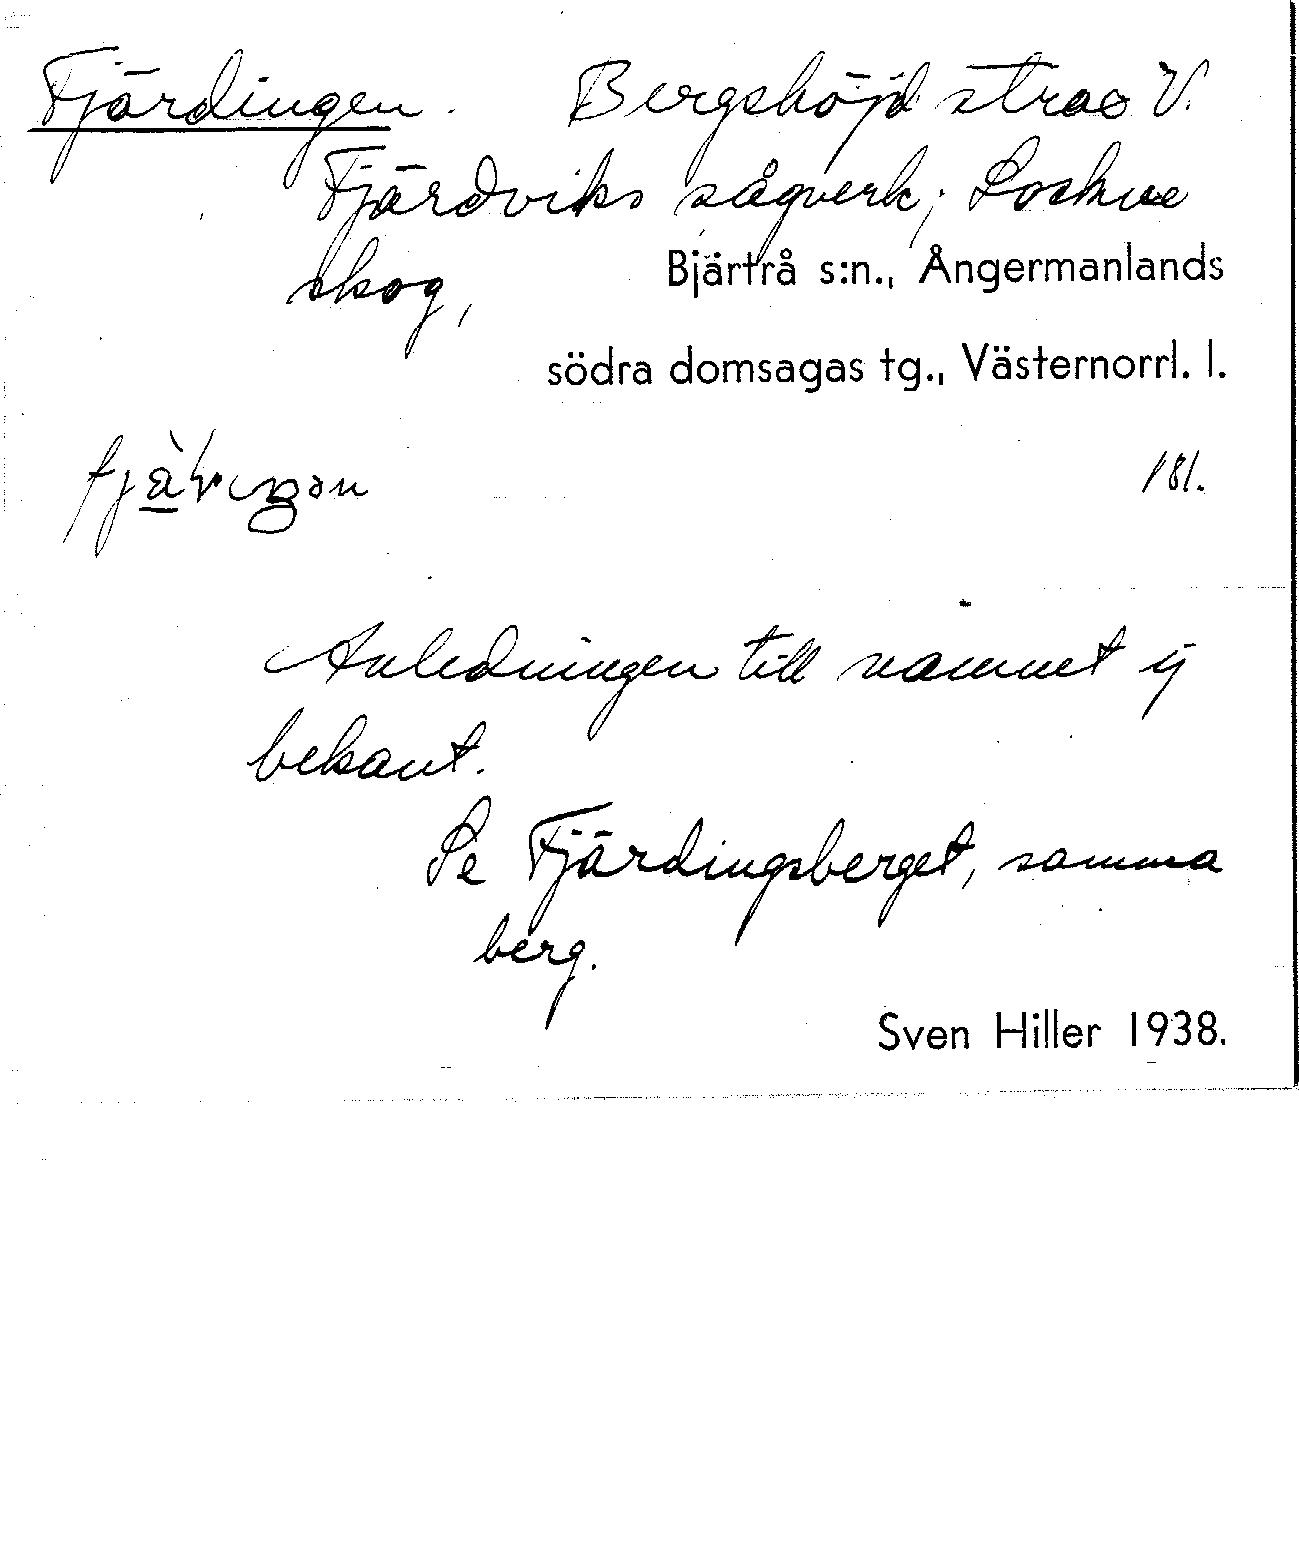 Fjärdingen. Bergshöjd strax V.
Fjärdviks sågverk; Loskue
skog,
Bjärtrå s:n., Ångermanlands
södra domsagas tg., Västernorrl. l.
181.
Anledningen till namnet ej
bekant.
Se Fjärdingsberget, samma
berg.
Sven Hiller 1938.